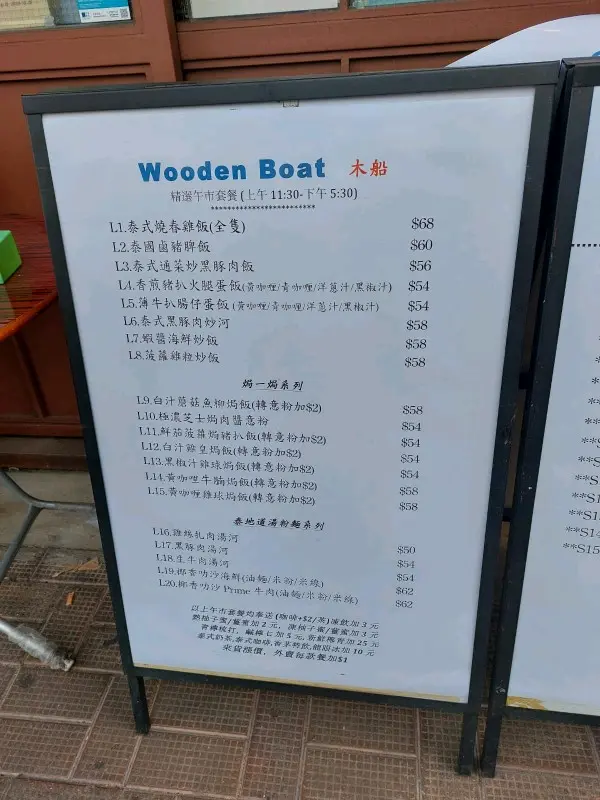 Wooden Boat 木船
精選午市套餐(上午11:30-下午5:30)
************************
L1.泰式燒春雞飯(全隻) $68
L2.泰國鹵豬脾飯 $60
L3.泰式通菜炒黑豚肉飯 $56
L4.香煎豬扒火腿蛋飯(黃咖喱/青咖喱/洋蔥汁/黑椒汁) $54
L5.薄牛扒腸仔蛋飯(黃咖喱/青咖喱/洋蔥汁/黑椒汁) $54
L6.泰式黑豚肉炒河 $58
L7.蝦醬海鮮炒飯 $58
L8.菠蘿雞粒炒飯 $58
焗一焗系列
L9.白汁蘑菇魚柳焗飯(轉意粉加$2) $58
L10.極濃芝士焗肉醬意粉 $54
L11.鮮茄菠蘿焗豬扒飯(轉意粉加$2) $54
L12.白汁雞皇焗飯(轉意粉加$2) $54
L13.黑椒汁雞球焗飯(轉意粉加$2) $54
L14.黃咖喱牛腩焗飯(轉意粉加$2) $58
L15.黃咖喱雞球焗飯(轉意粉加$2) $58
泰地道湯粉麵系列
L16.雞絲扎肉湯河 $50
L17.黑豚肉湯河 $54
L18.生牛肉湯河 $54
L19.椰香叻沙海鮮(油麵/米粉/米線) $62
L20.椰香叻沙 Prime 牛肉(油麵/米粉/米線) $62
以上午市套餐均奉送(咖啡+$2/茶)凍飲加 3 元
熱柚子蜜/薑蜜加 2 元, 凍柚子蜜/薑蜜加 3 元
青檸梳打, 鹹檸七加 5 元, 新鮮椰青加 25 元
泰式奶茶,泰式咖啡,香茅特飲,龍眼冰加 10 元
來貨漲價, 外賣每款餐加$1
**S1
**S14
**S15